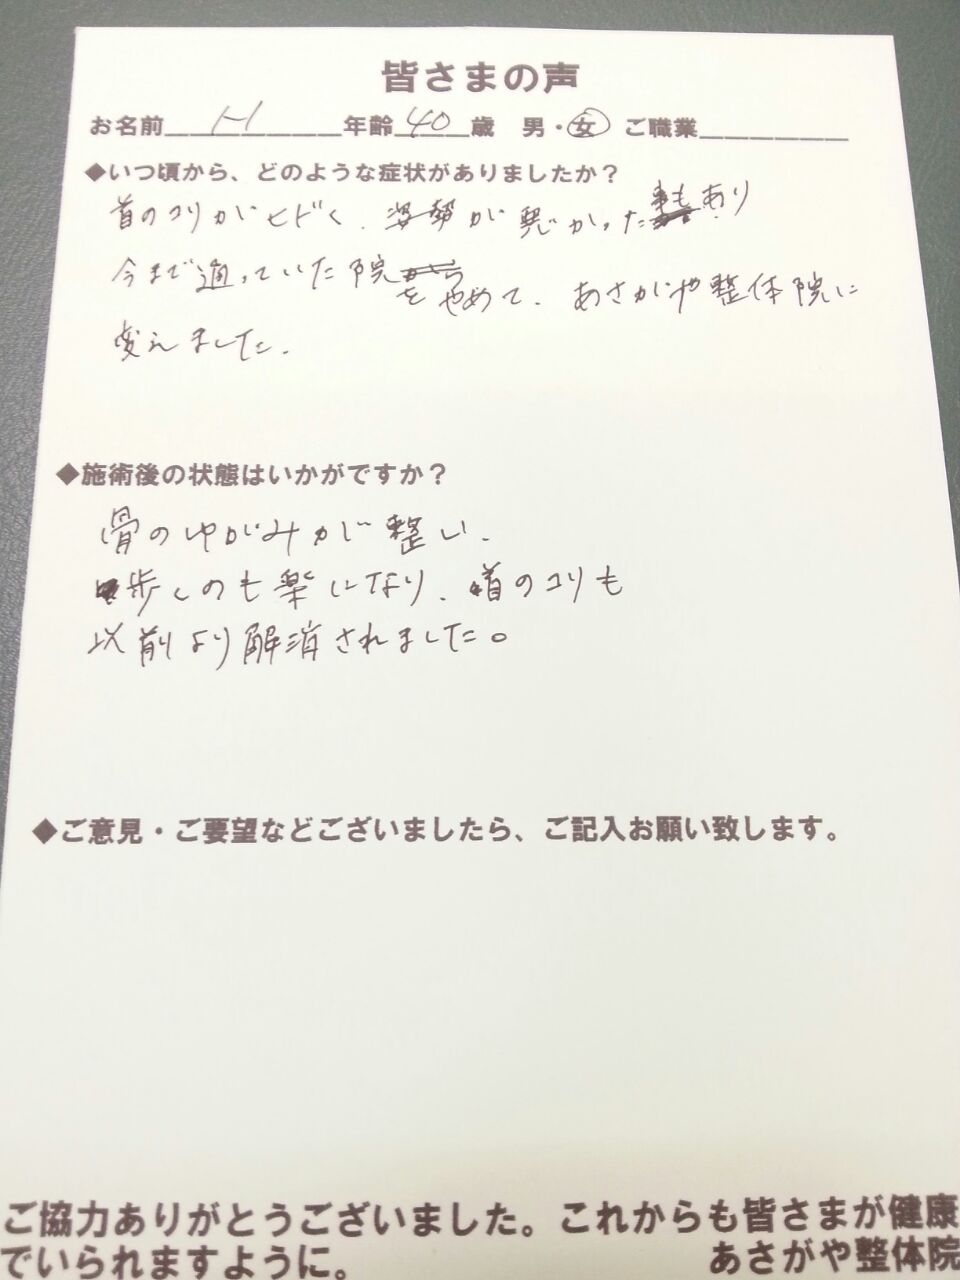 皆さまの声
お名前 H 年齢 40 歳 男・女 ご職業
◆いつ頃から、どのような症状がありましたか？
首のコリがヒドく、姿勢が悪かった事もあり
今まで通っていた院をやめて、あさがや整体院に
変えました。
◆施術後の状態はいかがですか？
骨のゆがみが整い、
歩くのも楽になり、首のコリも
以前より解消されました。
◆ご意見・ご要望などございましたら、ご記入お願い致します。
ご協力ありがとうございました。これからも皆さまが健康
でいられますように。 あさがや整体院